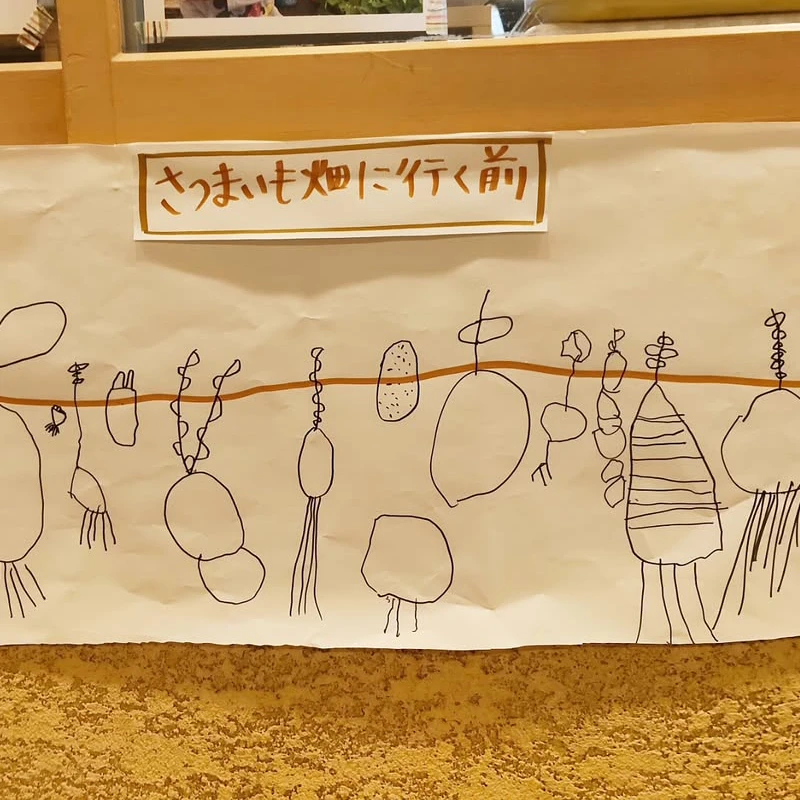 さつまいも畑に行く前